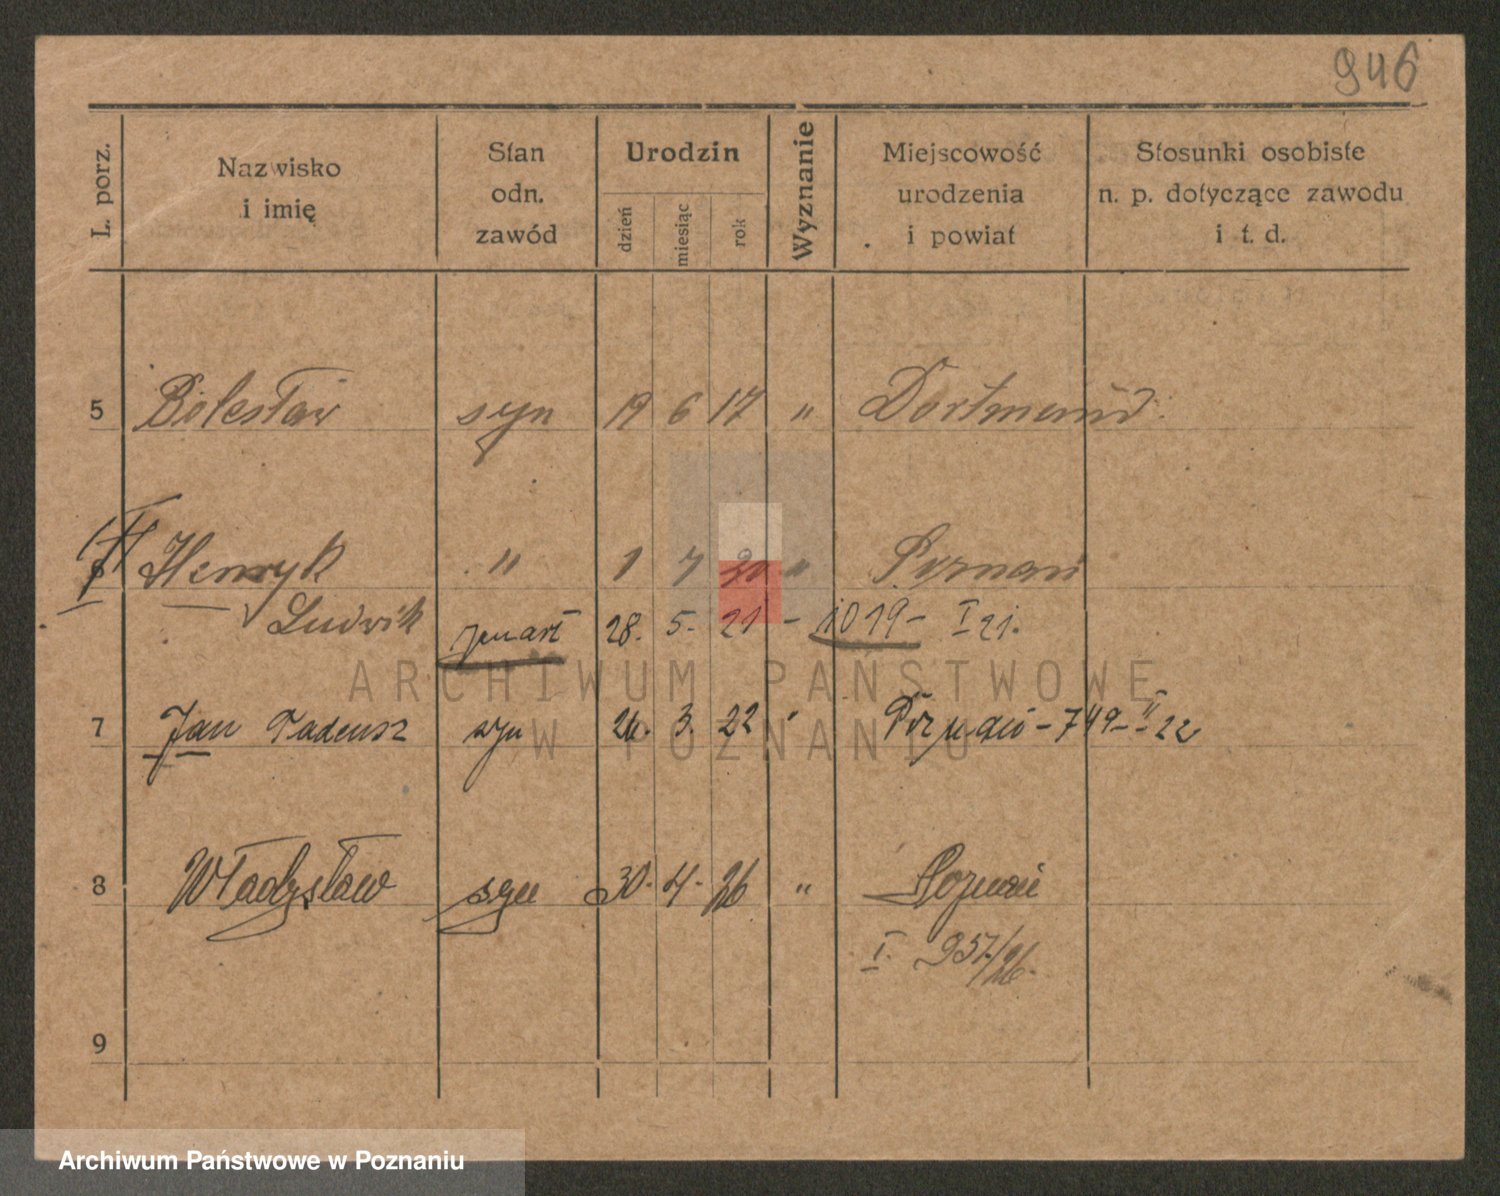 946
L. porz.
Nazwisko
i imię
Stan
odn.
zawód
Urodzin
dzień
miesiąc
rok
Wyznanie
Miejscowość
urodzenia
i powiat
Stosunki osobiste
n. p. dotyczące zawodu
i t. d.
5 Bolesław syn 19 6 17 " Dortmund
6 Henryk " 1 7 20 " Poznań
Ludwik zmarł 28. 5. 21 - 1019 - I 21.
ARCHIWUM PAŃSTWOWE
7 Jan Tadeusz syn 26. 3. 22 " Poznań - 749 - II 22
W POZNANIU
8 Władysław syn 30. 4. 26 " Poznań
I. 957/26.
9
Archiwum Państwowe w Poznaniu